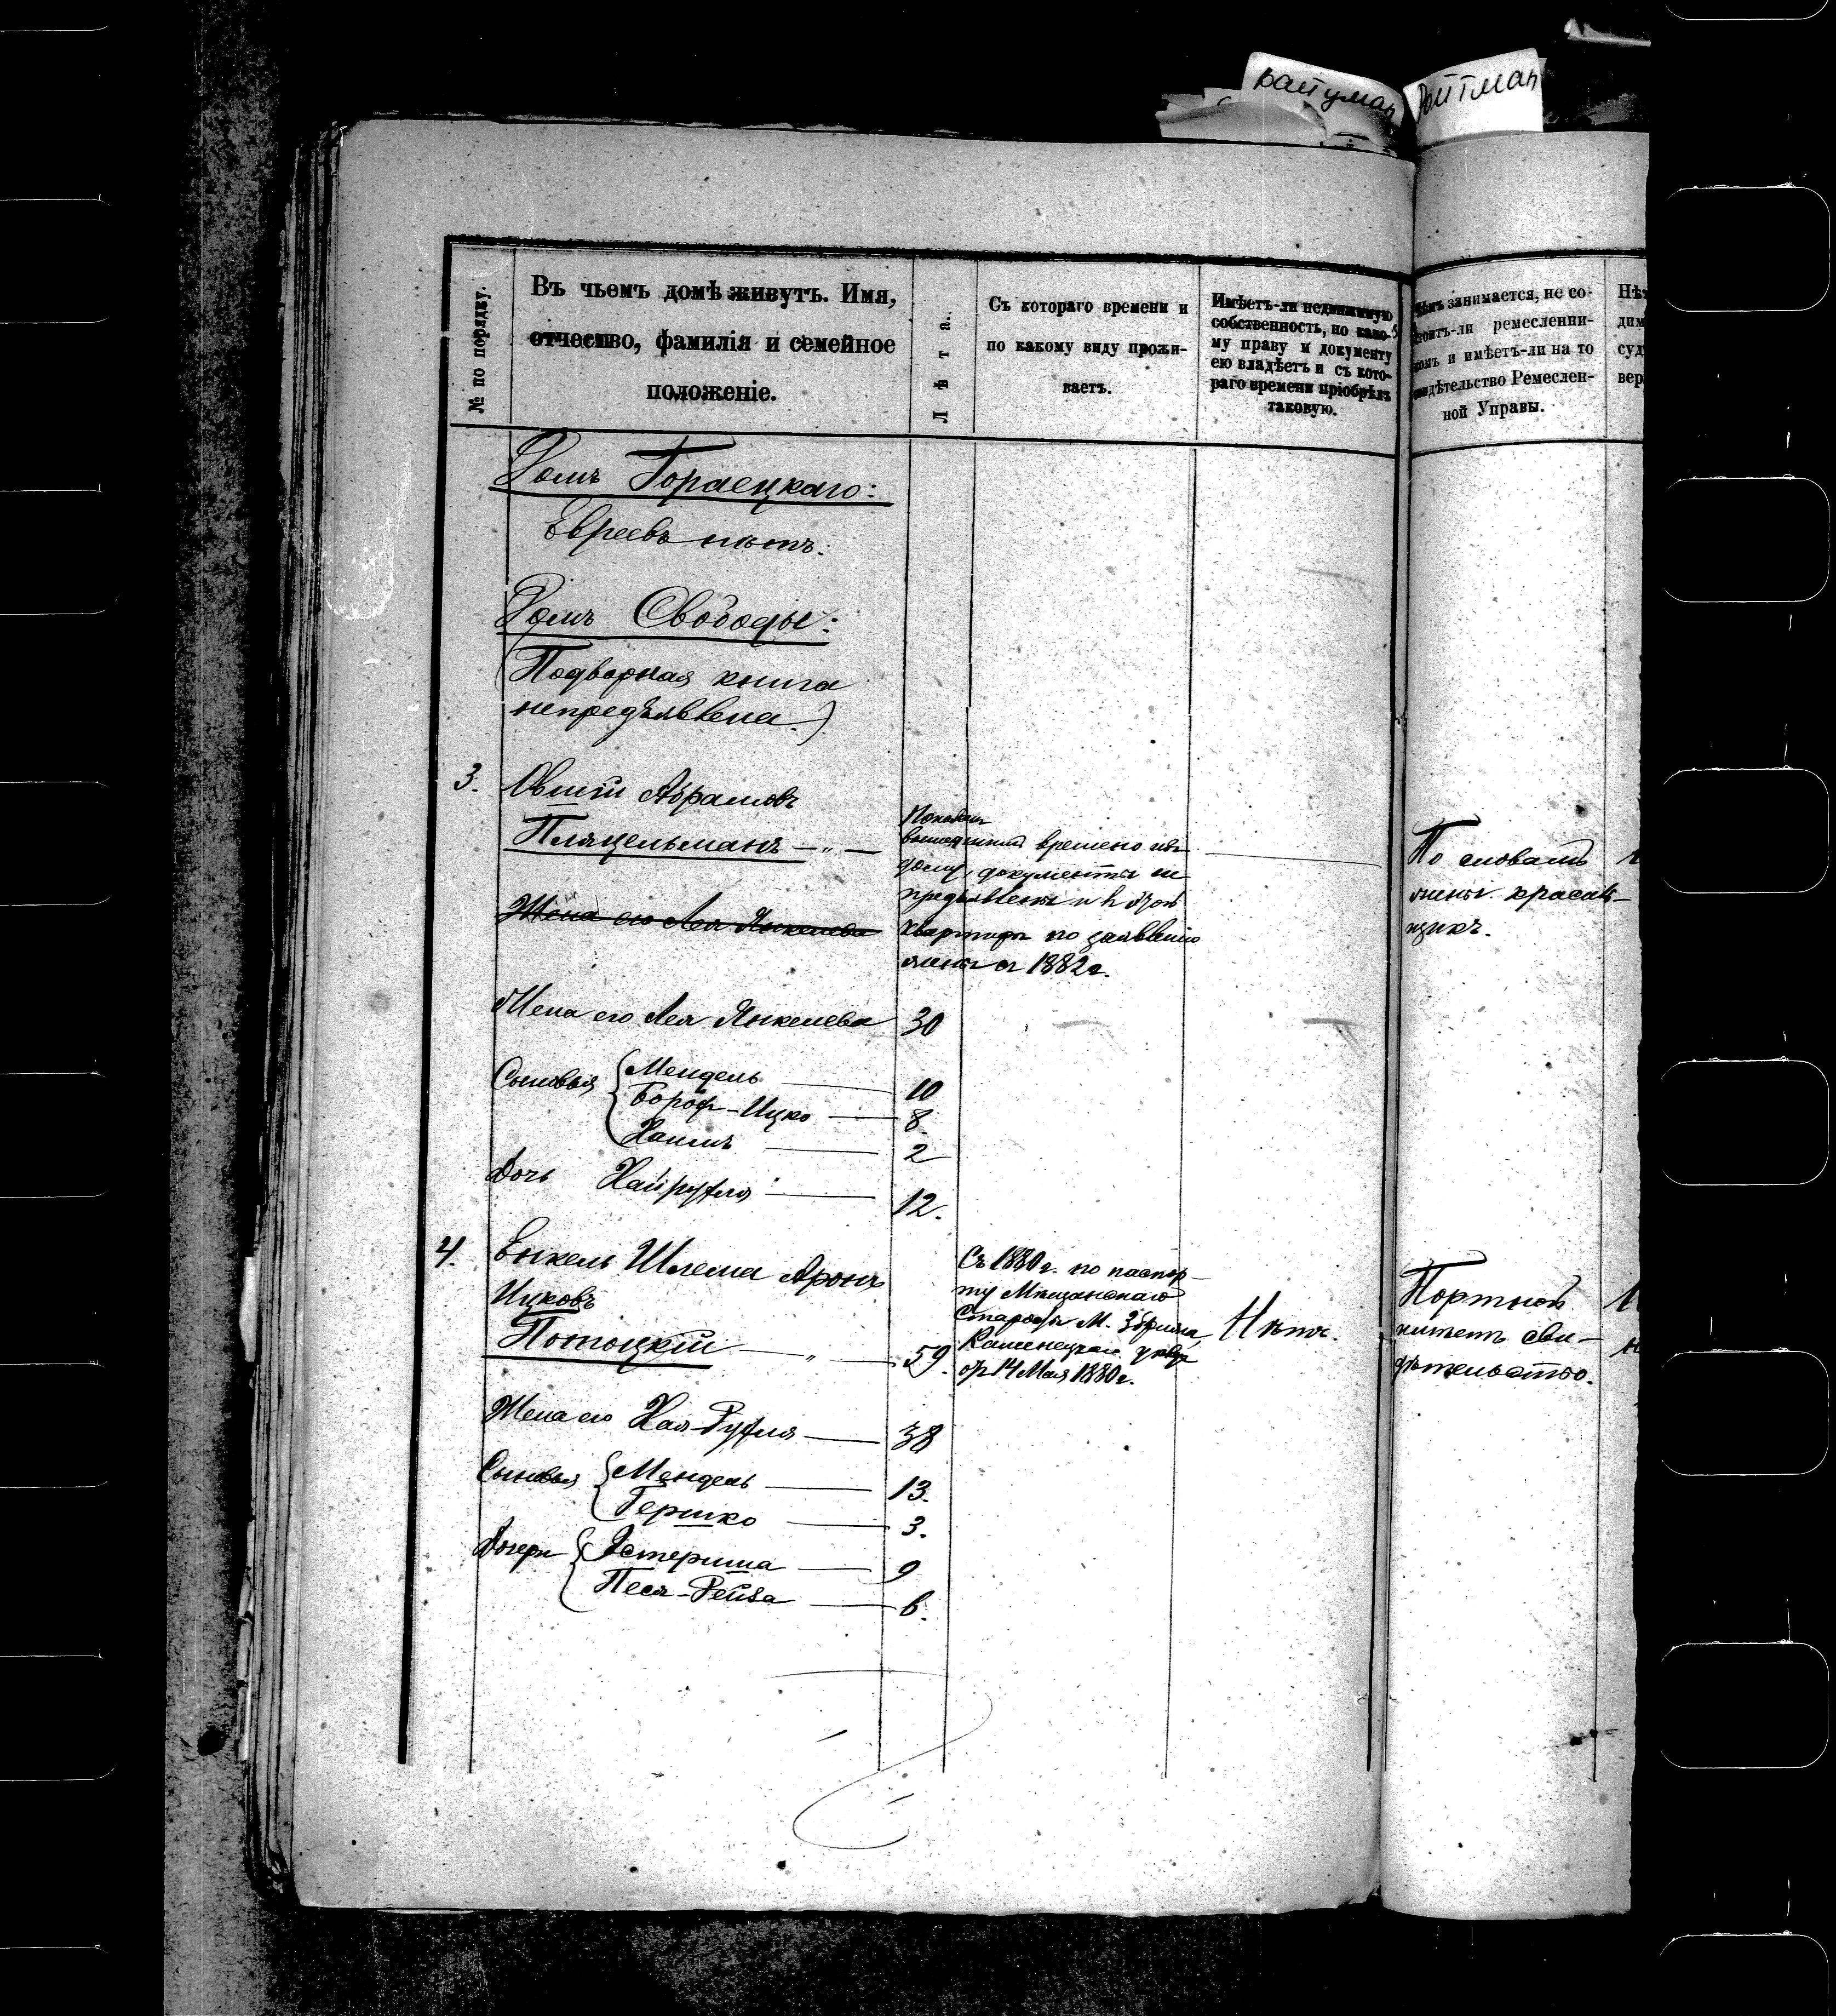 Вайцман
Ройтман
№ по порядку.
Въ чьемъ домѣ живутъ. Имя,
отчество, фамилія и семейное
положеніе.
Лѣта.
Съ котораго времени и
по какому виду прожи-
ваетъ.
Имѣетъ-ли недвижимую
собственность, по како-
му праву и документу
ею владѣетъ и съ кото-
раго времени пріобрѣлъ
таковую.
занимается, не со-
стоитъ-ли ремесленни-
комъ и имѣетъ-ли на то
свидѣтельство Ремеслен-
ной Управы.
Нѣт
дим
суд
вер
Домъ Гораецкаго:
Евреевъ нѣтъ.
Домъ Свободы:
(Подворная книга
непредъявлена.)
3. Абрамовъ
Пляцельманъ — " —
времено изъ
дому, документы не
предъявлены и въ этой
квартирѣ по заявленію
жены съ 1882 г.
По словамъ
жены красиль-
щикъ.
Жена его Лея Янкелева
Жена его Лея Янкелева 30
Сыновья { Мендель — 10
Борох-Ицко — 8.
Хаимъ — 2
Дочь Хайруфля — 12.
4. Енкель Шлема Аронъ
Ицковъ
Потоцкій — " — 59.
Съ 1880 г. по паспор-
ту Мѣщанскаго
Старосты М.
Каменецкаго уѣзда
от 14 Мая 1880 г.
Нѣтъ.
Портной
имѣетъ сви-
дѣтельство.
Жена его Хая-Руфля — 38
Сыновья { Мендель — 13.
Гершко — 3.
Дочери { Эстеришa — 9
Песя-Рейза — 6.